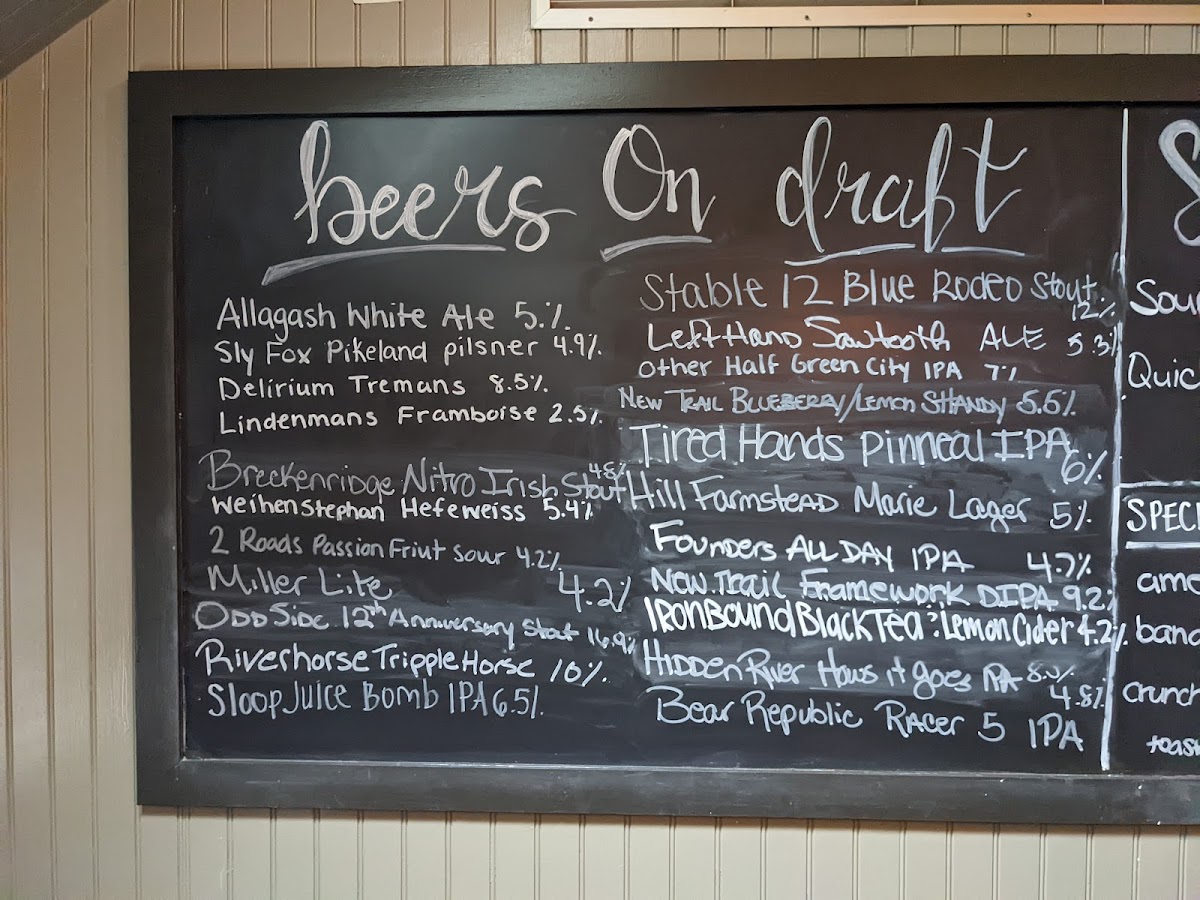 beers On draft
Allagash White Ale 5.%
Sly Fox Pikeland pilsner 4.9%
Delirium Tremans 8.5%
Lindenmans Framboise 2.5%
Breckenridge Nitro Irish Stout 4.8%
Weihenstephan Hefeweiss 5.4%
2 Roads Passion Friut Sour 4.2%
Miller Lite 4.2%
Odd Side 12th Anniversary Stout 16.9%
Riverhorse Tripple Horse 10%
Sloop Juice Bomb IPA 6.5%
Stable 12 Blue Rodeo Stout 12%
Left Hand Sawtooth ALE 5.3%
Other Half Green City IPA 7%
New Trail Blueberry/Lemon Shandy 5.6%
Tired Hands Pinneal IPA 6%
Hill Farmstead Marie Lager 5%
Founders ALL DAY IPA 4.7%
New Trail Framework DIPA 9.2%
IRONBOUND Black Tea & Lemon Cider 4.2%
Hidden River Hows it goes IPA 8.0%
4.8%
Bear Republic Racer 5 IPA
Sou
Quic
SPECI
ame
bana
crunch
toas